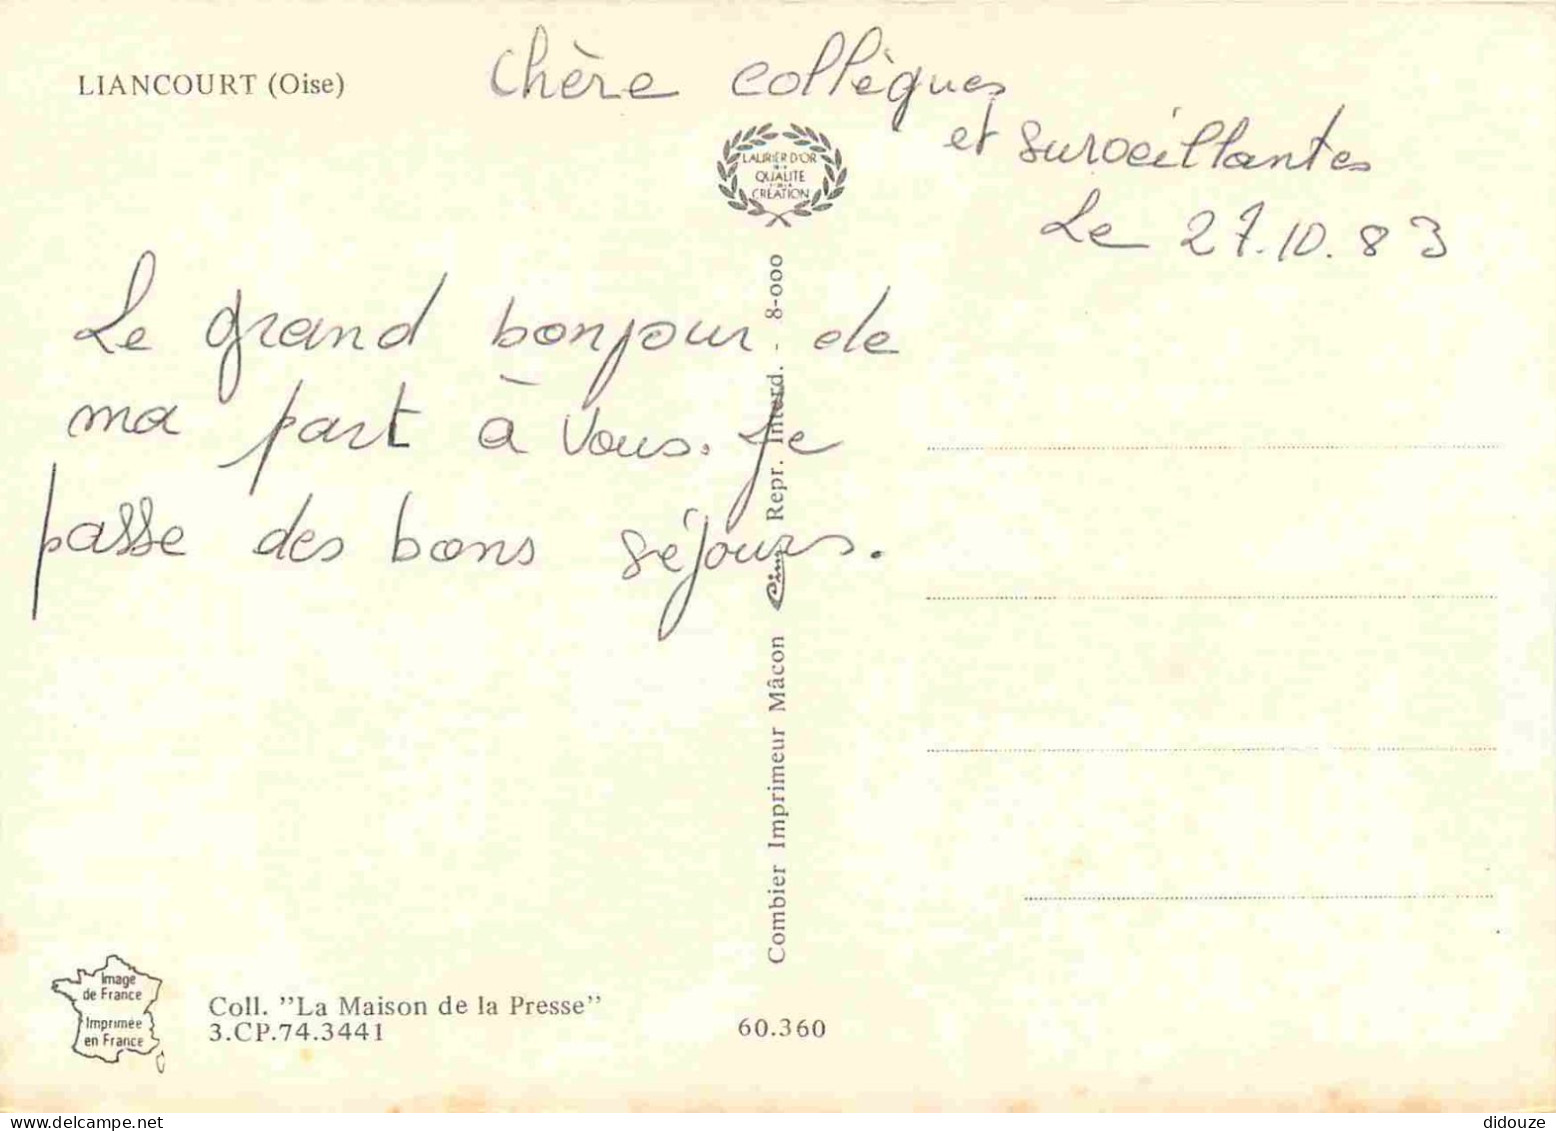 LIANCOURT (Oise)
chère collègues
et surveillantes
Le 27.10.83
LAURIER D'OR
QUALITÉ
CRÉATION
Le grand bonjour de
ma part à vous. Je
passe des bons séjours.
Combier Imprimeur Mâcon Cim Repr. Interd. - 8-000
Image
de France
Imprimée
en France
Coll. "La Maison de la Presse"
3.CP.74.3441
60.360
didouze